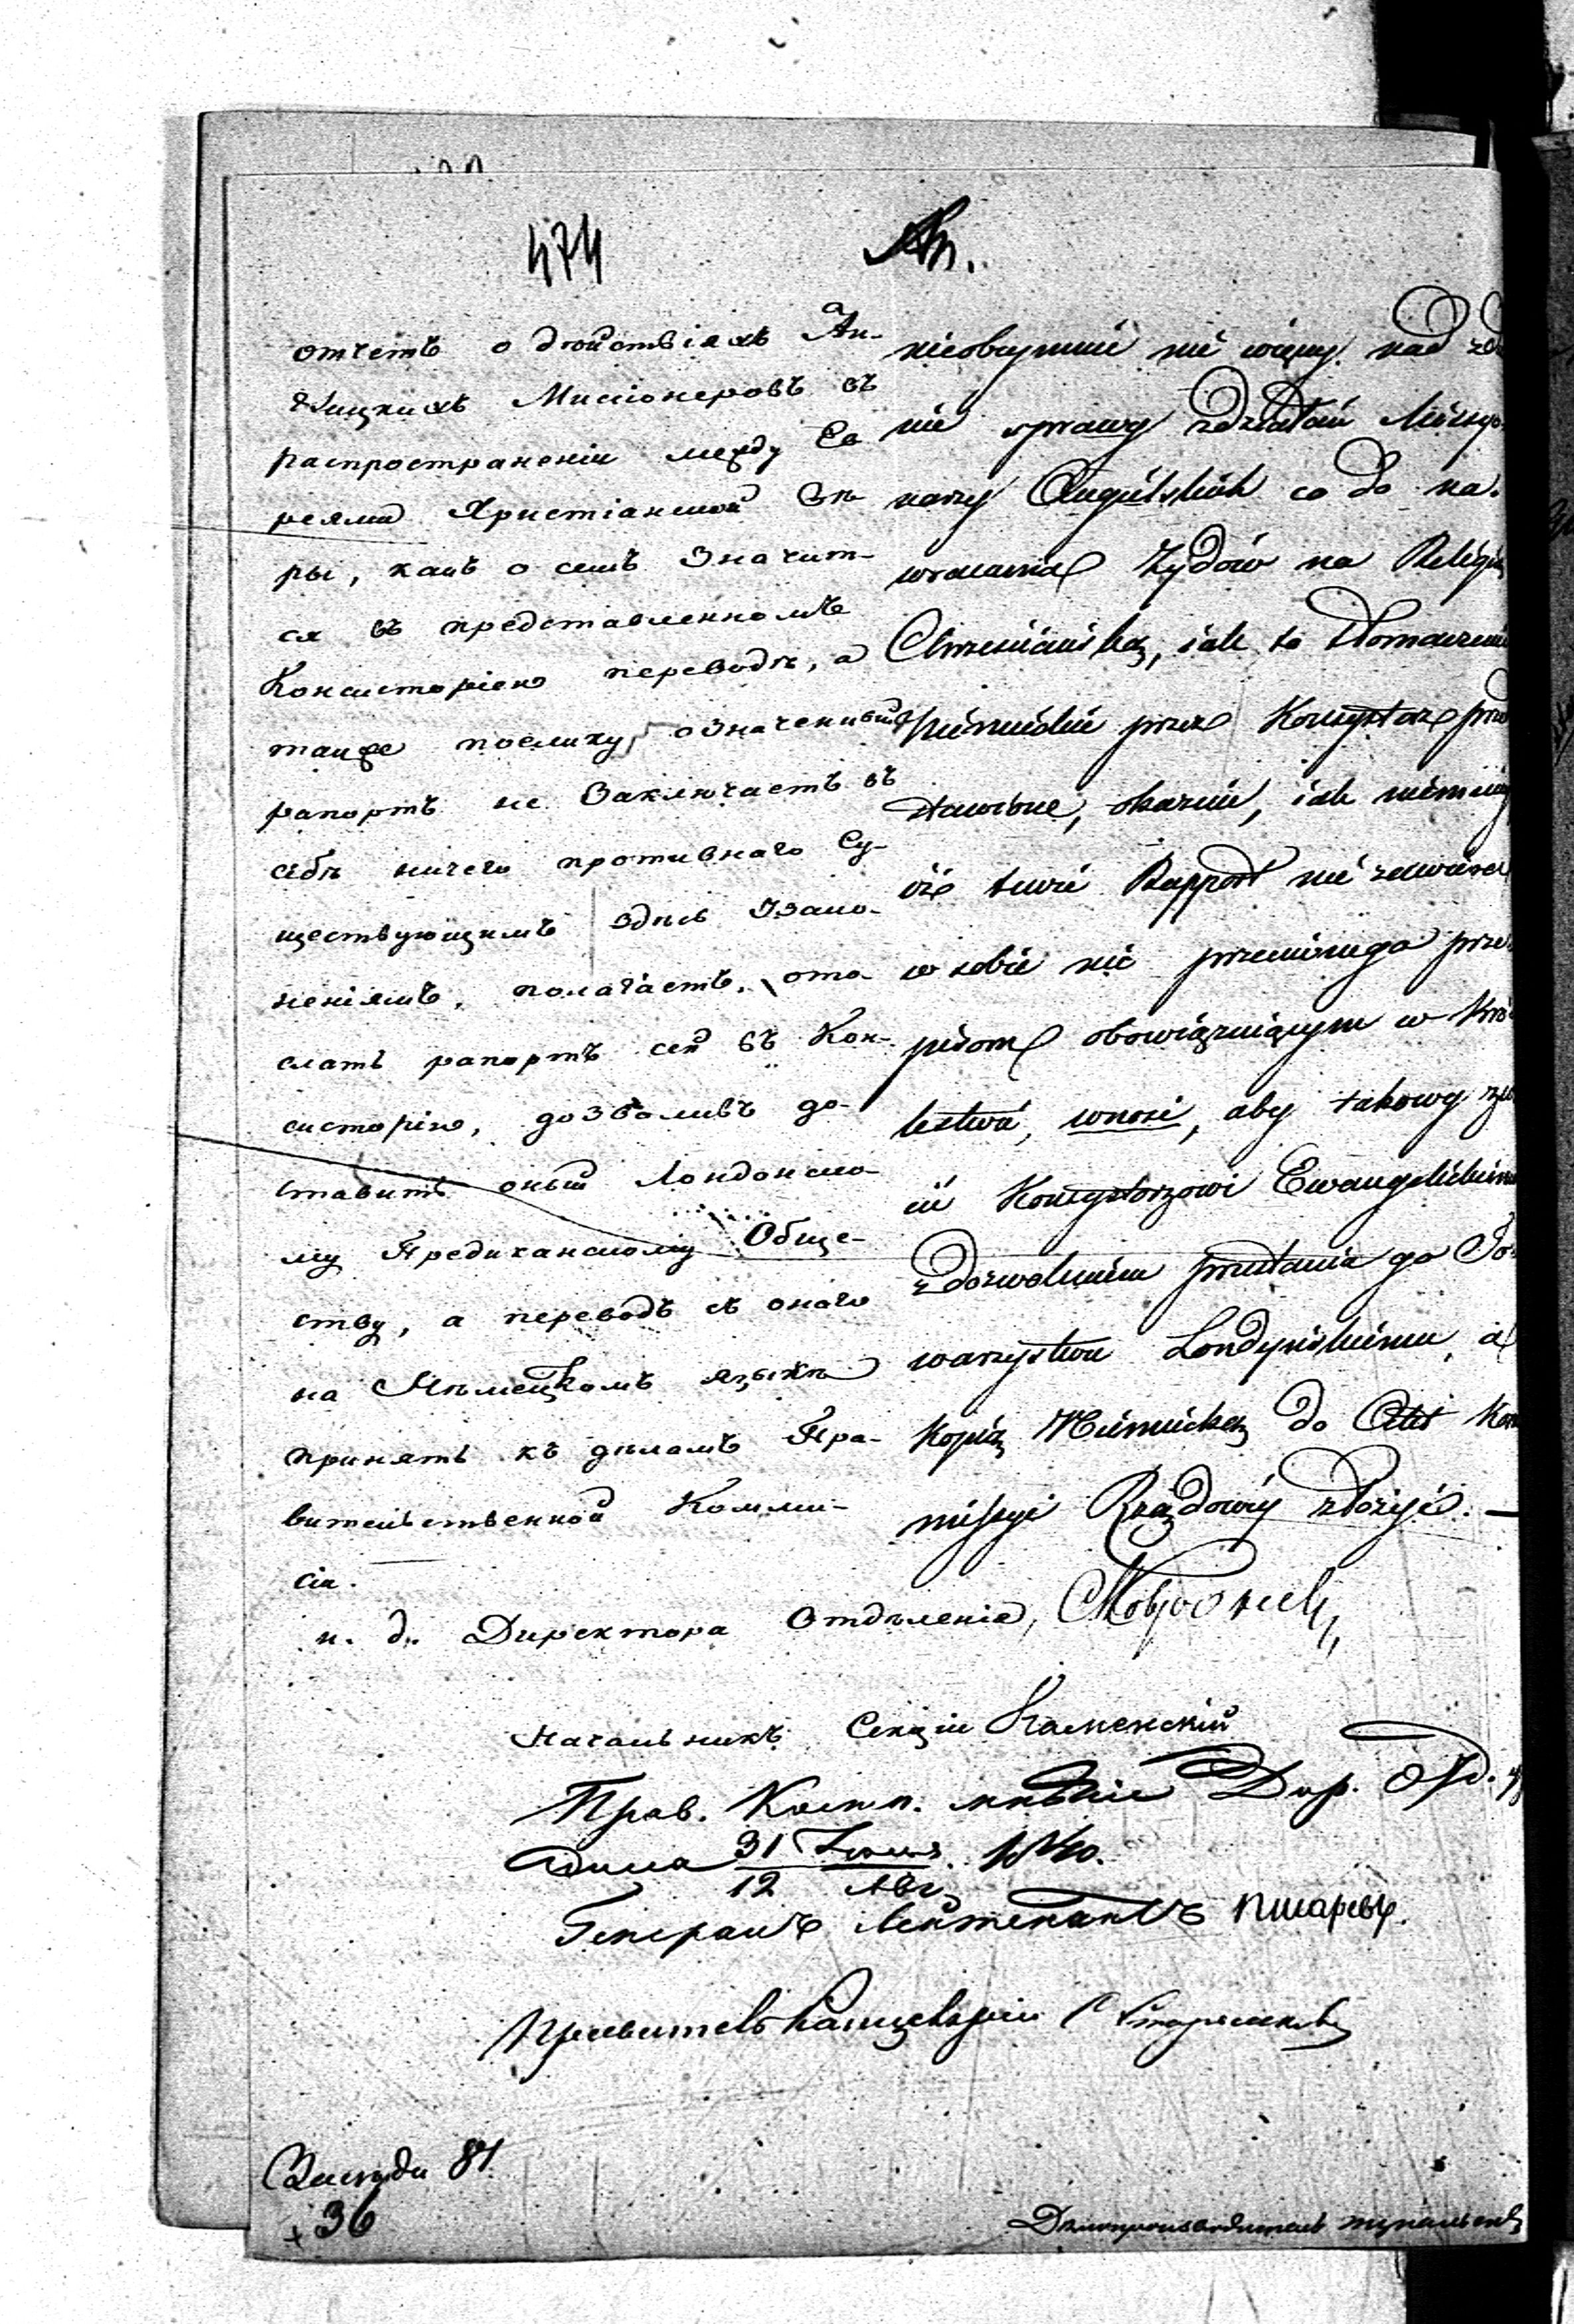 474
отчетъ о дѣйствіяхъ Ан-
глицкихъ Мисіонеровъ въ
распространеніи между Ев
реями Христіанской Вѣ-
ры, какъ о семъ значит-
ся въ представленномъ
Консисторіею переводѣ, а
также поелику означенный
рапортъ не заключаетъ въ
себѣ ничего противнаго Су-
ществующимъ здѣсь Узако-
неніямъ, полагаетъ, ото-
слать рапортъ сей въ Кон-
систорію, дозволивъ до-
ставить оный Лондонско-
му Предиканскому Обще-
ству, а переводъ съ онаго
на Нѣмецкомъ языкѣ
принять къ дѣламъ Пра-
вительственной Комми-
сіи.
nieobeymuie nic więcey nad zda
nie sprawy zdziałań Missyo-
narzy Angielskich co do na-
wracania Żydów na Religią
Chrześciańską, iak to tłomaczenie
Niemieckie przez Konsystorz przed
stawione, okazuie, iak niemniey
iż tenże Rapport nie zawiera
w sobie nic przeciwnego prze
pisom obowiązuiącym w Kró
lestwie, wnosi, aby takowy zwró
cić Konsystorzowi Ewangelickiemu
z dozwoleniem przesłania go To-
warzystwu Londyńskiemu, a
Kopią Niemiecką do Akt Kom
missyi Rządowey złożyć. —
и. д. Директора Отдѣленія,
Начальникъ Секціи Каменскій
Прав. Комм. мнѣніе Дир. Отд.
31 Іюля 1840.
12 Авг.
Генералъ Лейтенантъ Писаревъ.
Правитель Канцеляріи
87
36
Дѣлопроизводитель